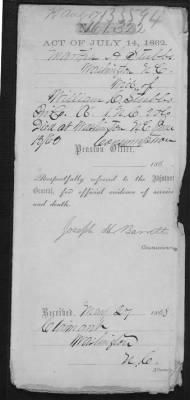 ACT OF JULY 14, 1862.
Martha A Stubbs
Washington N.C.
Wid. of
William C. Stubbs
A. 1 N.C. Vols
Died at Washington N.C.
Consumption
Pension Office,
186
Respectfully referred to the Adjutant
General, for official evidence of service
and death.
Joseph H. Barrett
Commissioner
Received, May 27 186
Claimant
Washington
N.C.